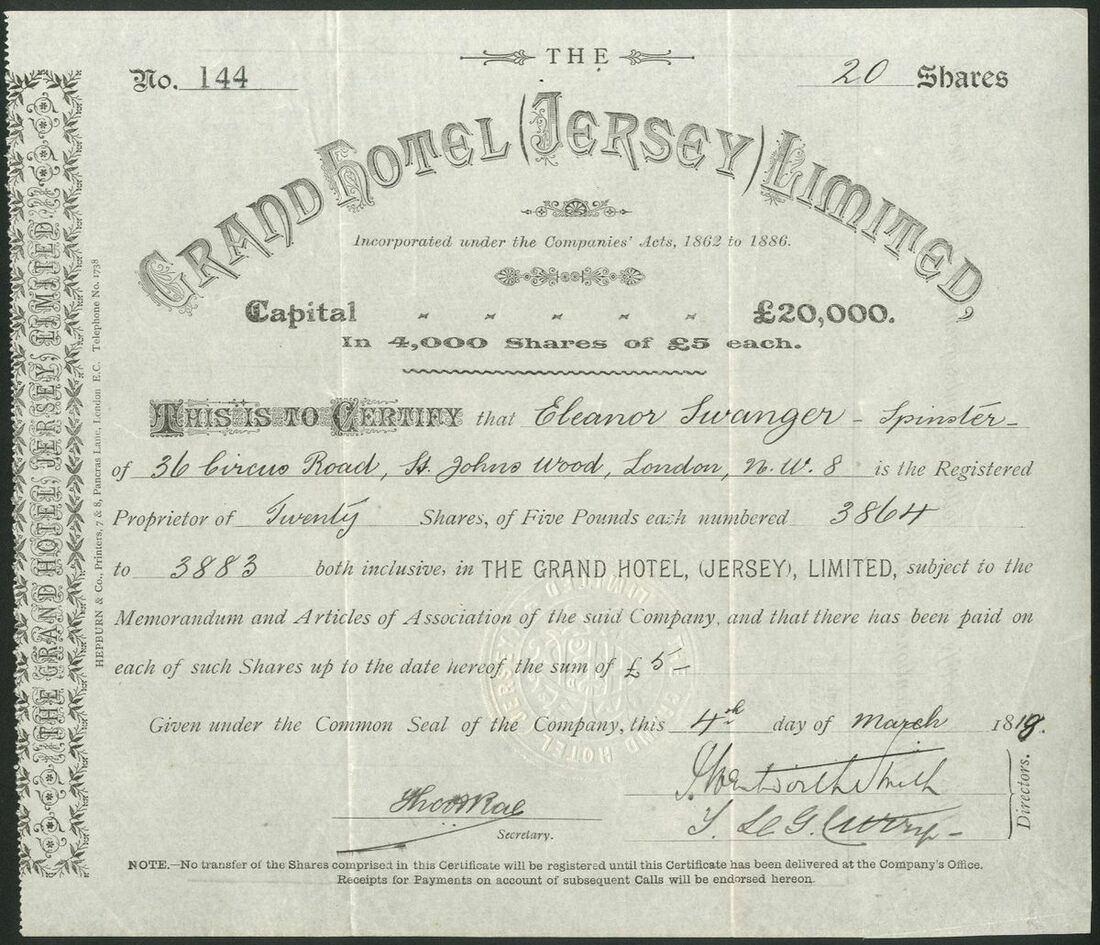 THE
No. 144
20 Shares
GRAND HOTEL (JERSEY) LIMITED,
Incorporated under the Companies' Acts, 1862 to 1886.
Capital " " " " " £20,000.
In 4,000 Shares of £5 each.
THIS IS TO CERTIFY that Eleanor Swanger - Spinster -
of 36 Circus Road, St. Johns Wood, London, N.W. 8 is the Registered
Proprietor of Twenty Shares, of Five Pounds each numbered 3864
to 3883 both inclusive, in THE GRAND HOTEL, (JERSEY), LIMITED, subject to the
Memorandum and Articles of Association of the said Company, and that there has been paid on
each of such Shares up to the date hereof, the sum of £ 5 -
Given under the Common Seal of the Company, this 4th day of March 1918.
Wentworth Smith
Secretary.
Directors.
NOTE.—No transfer of the Shares comprised in this Certificate will be registered until this Certificate has been delivered at the Company's Office.
Receipts for Payments on account of subsequent Calls will be endorsed hereon.
THE GRAND HOTEL, JERSEY, LIMITED.
HEPBURN & Co., Printers, 7 & 8, Pancras Lane, London E.C. Telephone No. 1738